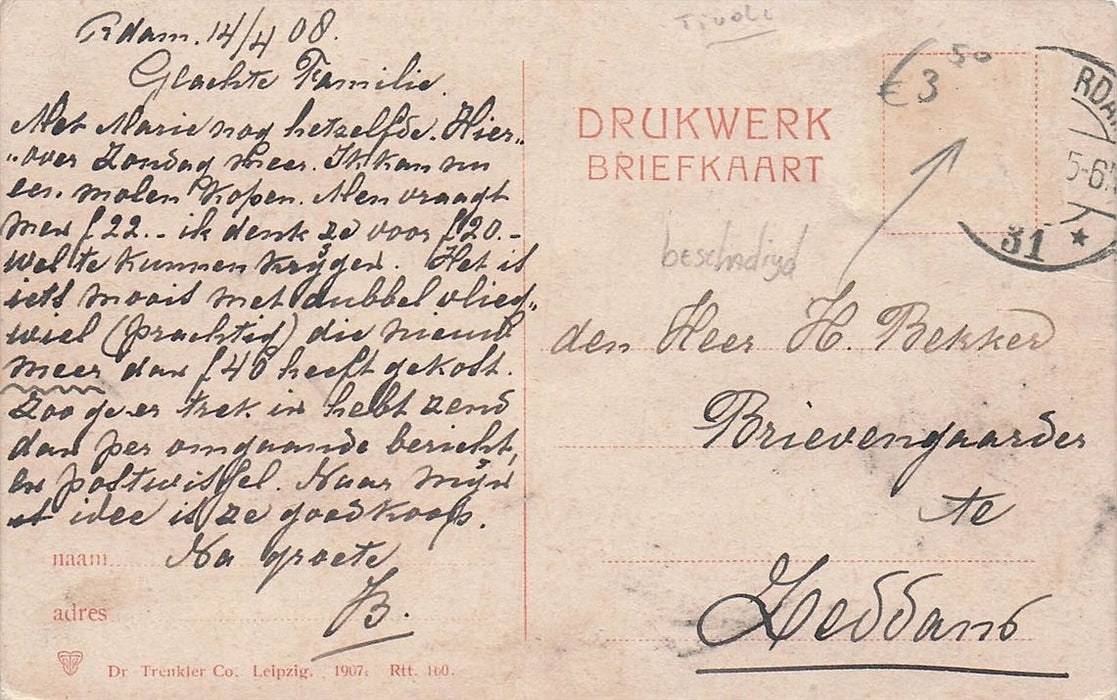 Rdam. 14/4 08.
Geachte Familie.
Met Marie nog hetzelfde. Hier-
"over Zondag meer. Ik kan nu
een molen kopen. Men vraagt
mer f22.- ik denk ze voor f20.-
wel te kunnen krijgen. Het is
iets moois met dubbel vlieg"
wiel (prachtig) die nieuw
meer dan f40 heeft gekost.
Zoo ge er trek in hebt zend
dan per omgaande bericht,
en postwissel. Naar mijn
idee is ze goodkoop.
Na groete
B.
naam
adres
Dr Trenkler Co. Leipzig. 1907. Rtt. 160.
Tivoli
€ 3 50
DRUKWERK
BRIEFKAART
beschadigd
RDA
5-6
31 *
den Heer H. Bekker
Brievengaarder
te
Zeddam